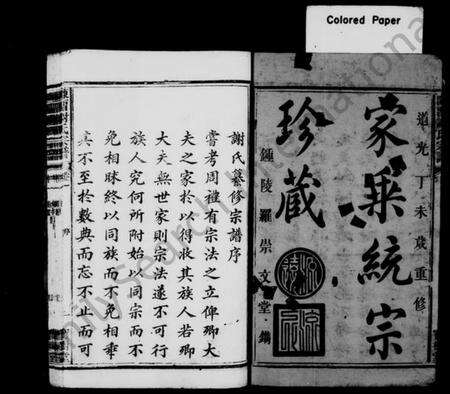 Colored Paper
道光丁未歲重修
家乘統宗
珍藏
鍾陵羅崇文堂鐫
謝氏纂修宗譜序
嘗考周禮有宗法之立俾卿大
夫之家於以得收其族人若卿
大夫無世家則宗法遂不可行
族人究何所附始以同宗而不
免相昧終以同族而不免相乖
真不至於數典而忘不止而可